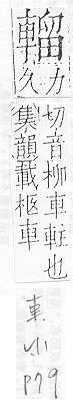 䡜
力久
切音柳車軖也
集韻載柩車
車
小
P79